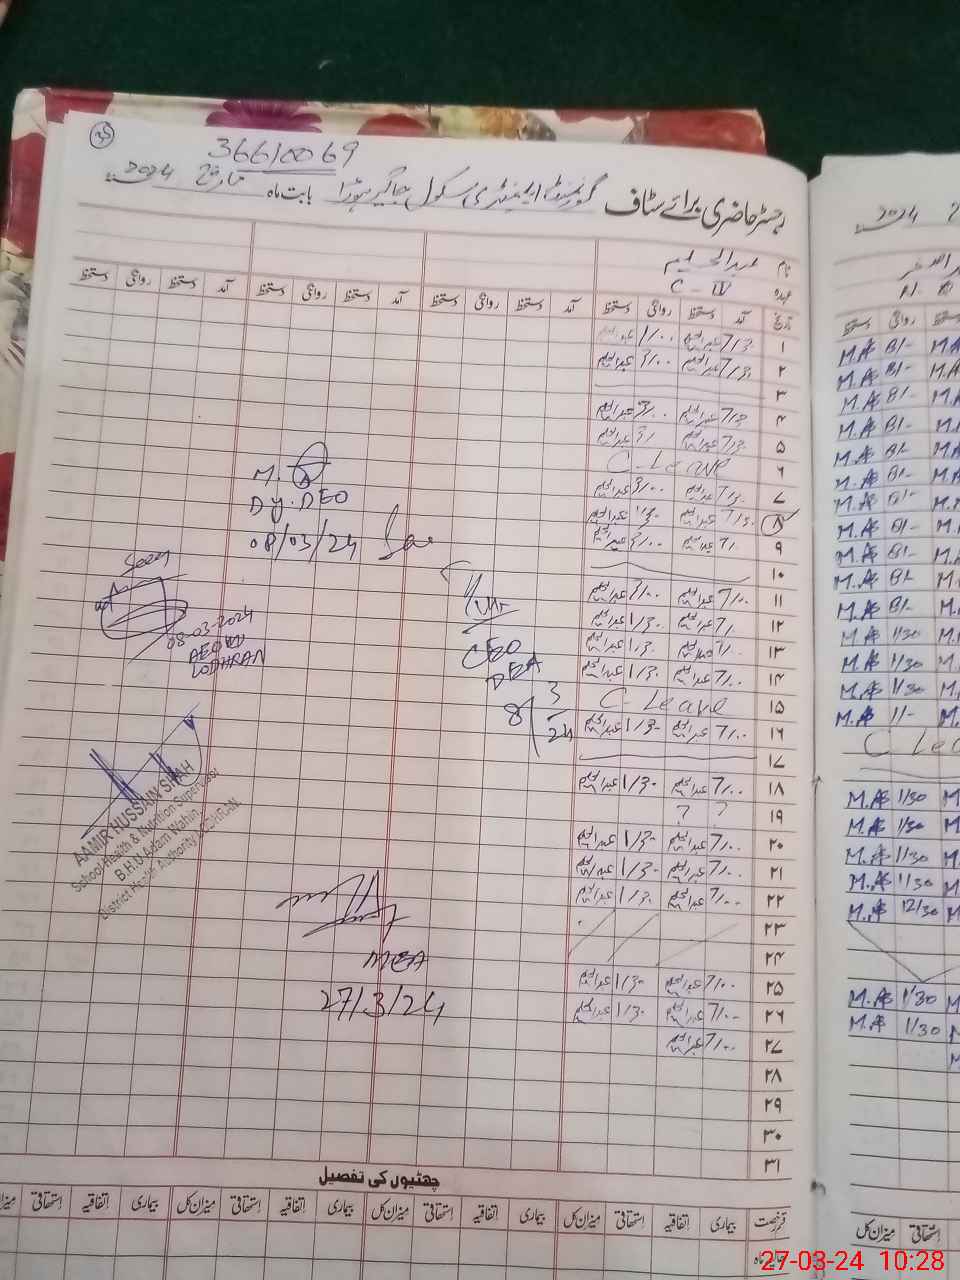 35
36610069
رجسٹر حاضری برائے سٹاف گورنمنٹ ایلیمنٹری سکول بابت ماہ مارچ 2024
نام عبدالحلیم
عہدہ C - IV
تاریخ آمد دستخط روانگی دستخط آمد دستخط روانگی دستخط آمد دستخط روانگی دستخط آمد دستخط روانگی دستخط
۱ 7/3. عبدالحلیم 1/..
۲ 7/3. عبدالحلیم 3/.. عبدالحلیم
۳
۴ 7/3 عبدالحلیم 3/.. عبدالحلیم
۵ 7/3. عبدالحلیم 3/ عبدالحلیم
۶ C-Leave
۷ 7/3. عبدالحلیم 3/.. عبدالحلیم
۸ 7/3. عبدالحلیم 1/3- عبدالحلیم
۹ 7/. عبدالحلیم 3/.. عبدالحلیم
۱۰
۱۱ 7/.. عبدالحلیم 3/.. عبدالحلیم
۱۲ 7/. عبدالحلیم 1/3. عبدالحلیم
۱۳ 7/.. عبدالحلیم 1/3. عبدالحلیم
۱۴ 7/.. عبدالحلیم 1/3. عبدالحلیم
۱۵ C-Leave
۱۶ 7/.. عبدالحلیم 1/3- عبدالحلیم
۱۷
۱۸ 7/.. عبدالحلیم 1/3- عبدالحلیم
۱۹ ? ?
۲۰ 7/.. عبدالحلیم 1/3- عبدالحلیم
۲۱ 7/.. عبدالحلیم 1/3- عبدالحلیم
۲۲ 7/.. عبدالحلیم 1/3. عبدالحلیم
۲۳
۲۴
۲۵ 7/.. عبدالحلیم 1/3- عبدالحلیم
۲۶ 7/.. عبدالحلیم 1/3. عبدالحلیم
۲۷ 7/.. عبدالحلیم
۲۸
۲۹
۳۰
۳۱
Dy. DEO
08/03/24
Seen
08-03-2024
AEO
LODHRAN
CEO
DEA
8/3/24
AAMIR HUSSAIN SHAH
School Health & Nutrition Supervisor
B.H.U Adam Wahin
District Health Authority LODHRAN.
MEA
27/3/24
چھٹیوں کی تفصیل
قسم رخصت بیماری اتفاقیہ استحقاقی میزان کل بیماری اتفاقیہ استحقاقی میزان کل بیماری اتفاقیہ استحقاقی میزان کل بیماری اتفاقیہ استحقاقی میزان
2024
روانگی دستخط
M.A 8/-
M.A 8/-
M.A 8/-
M.A 8/-
M.A 8/-
M.A 8/-
M.A 8/-
M.A 8/-
M.A 8/-
M.A 8/-
M.A 8/-
M.A 1/30
M.A 1/30
M.A 1/30
M.A 1/-
C Lea
M.A 1/30
M.A 1/30
M.A 1/30
M.A 1/30
M.A 12/30
M.A 1/30
M.A 1/30
استحقاقی میزان کل
27-03-24 10:28